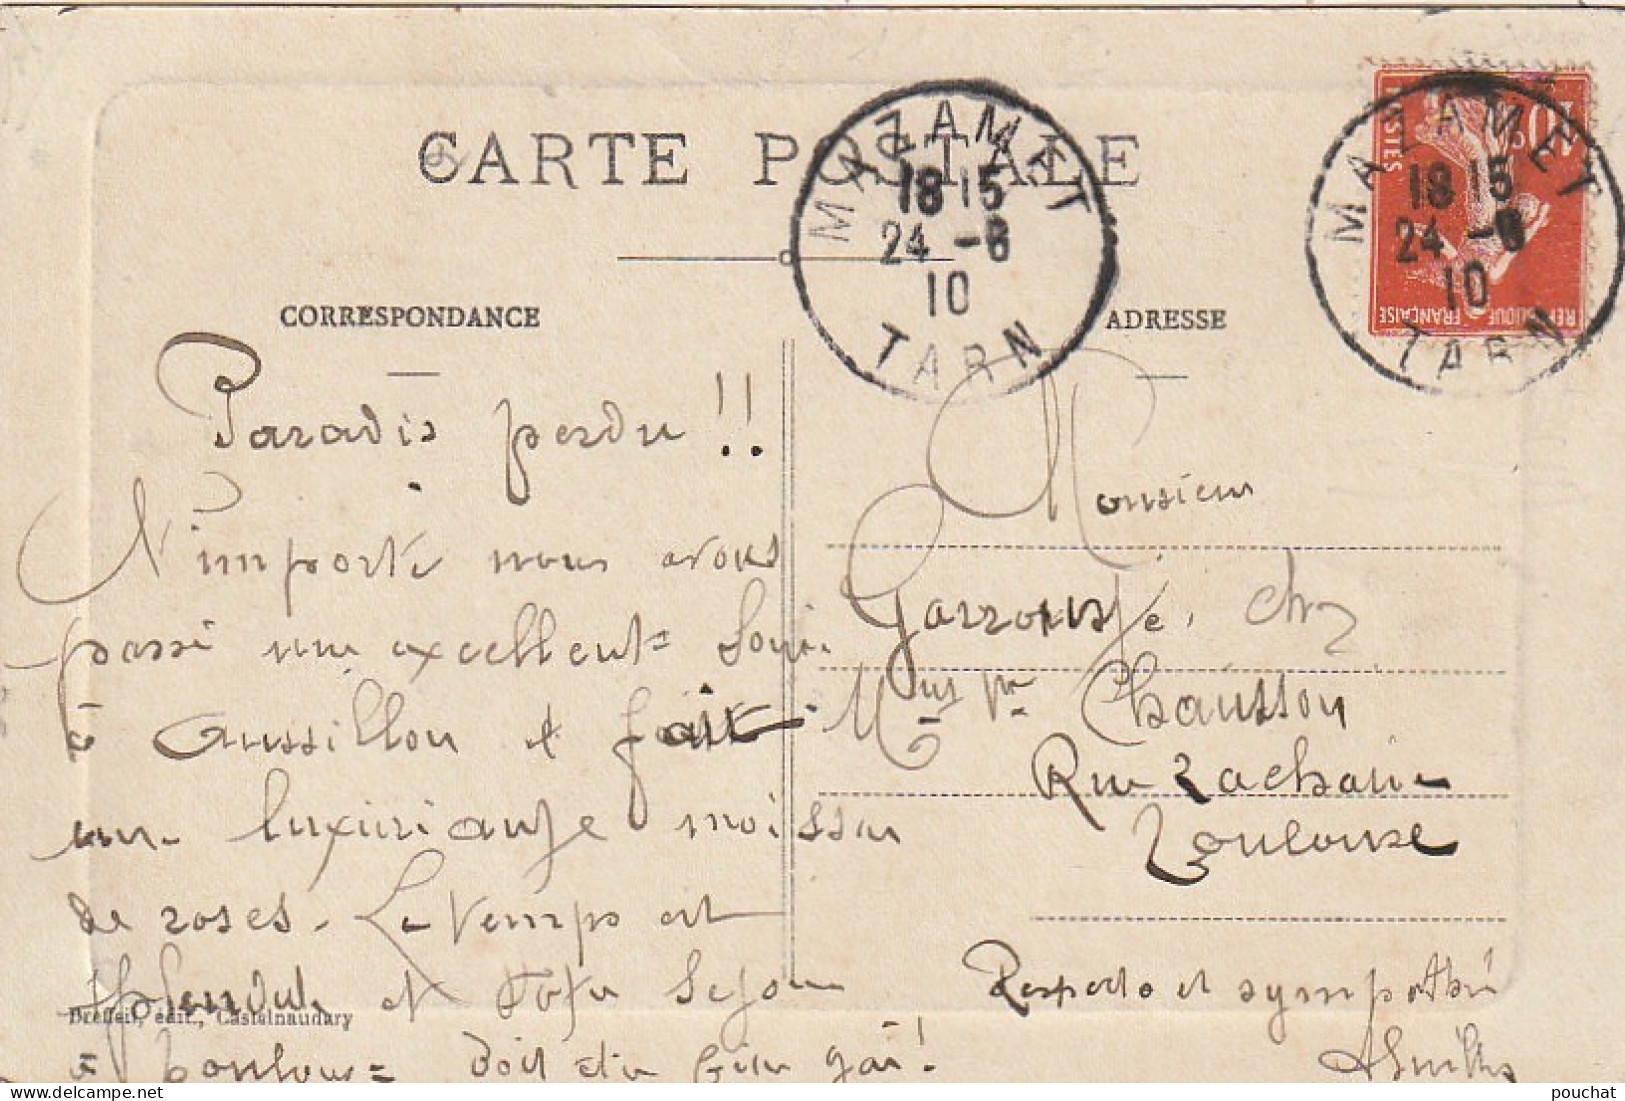 CARTE POSTALE
MAZAMET
18 15
24 -6
10
TARN
MAZAMET
18 15
24 -6
10
TARN
10
POSTES
REPUBLIQUE FRANÇAISE
CORRESPONDANCE
ADRESSE
Paradis perdu !!
N'importe nous avons
passé une excellente
à Aussillon et fait
une luxuriante moisson
de roses. Le temps est
splendide et votre séjour
à Toulouse doit être bien gai!
Monsieur
Garrouste, chez
Chausson
Rue Zacharie
Toulouse
Respects et sympathie
Breffeil, édit., Castelnaudary
pouchat